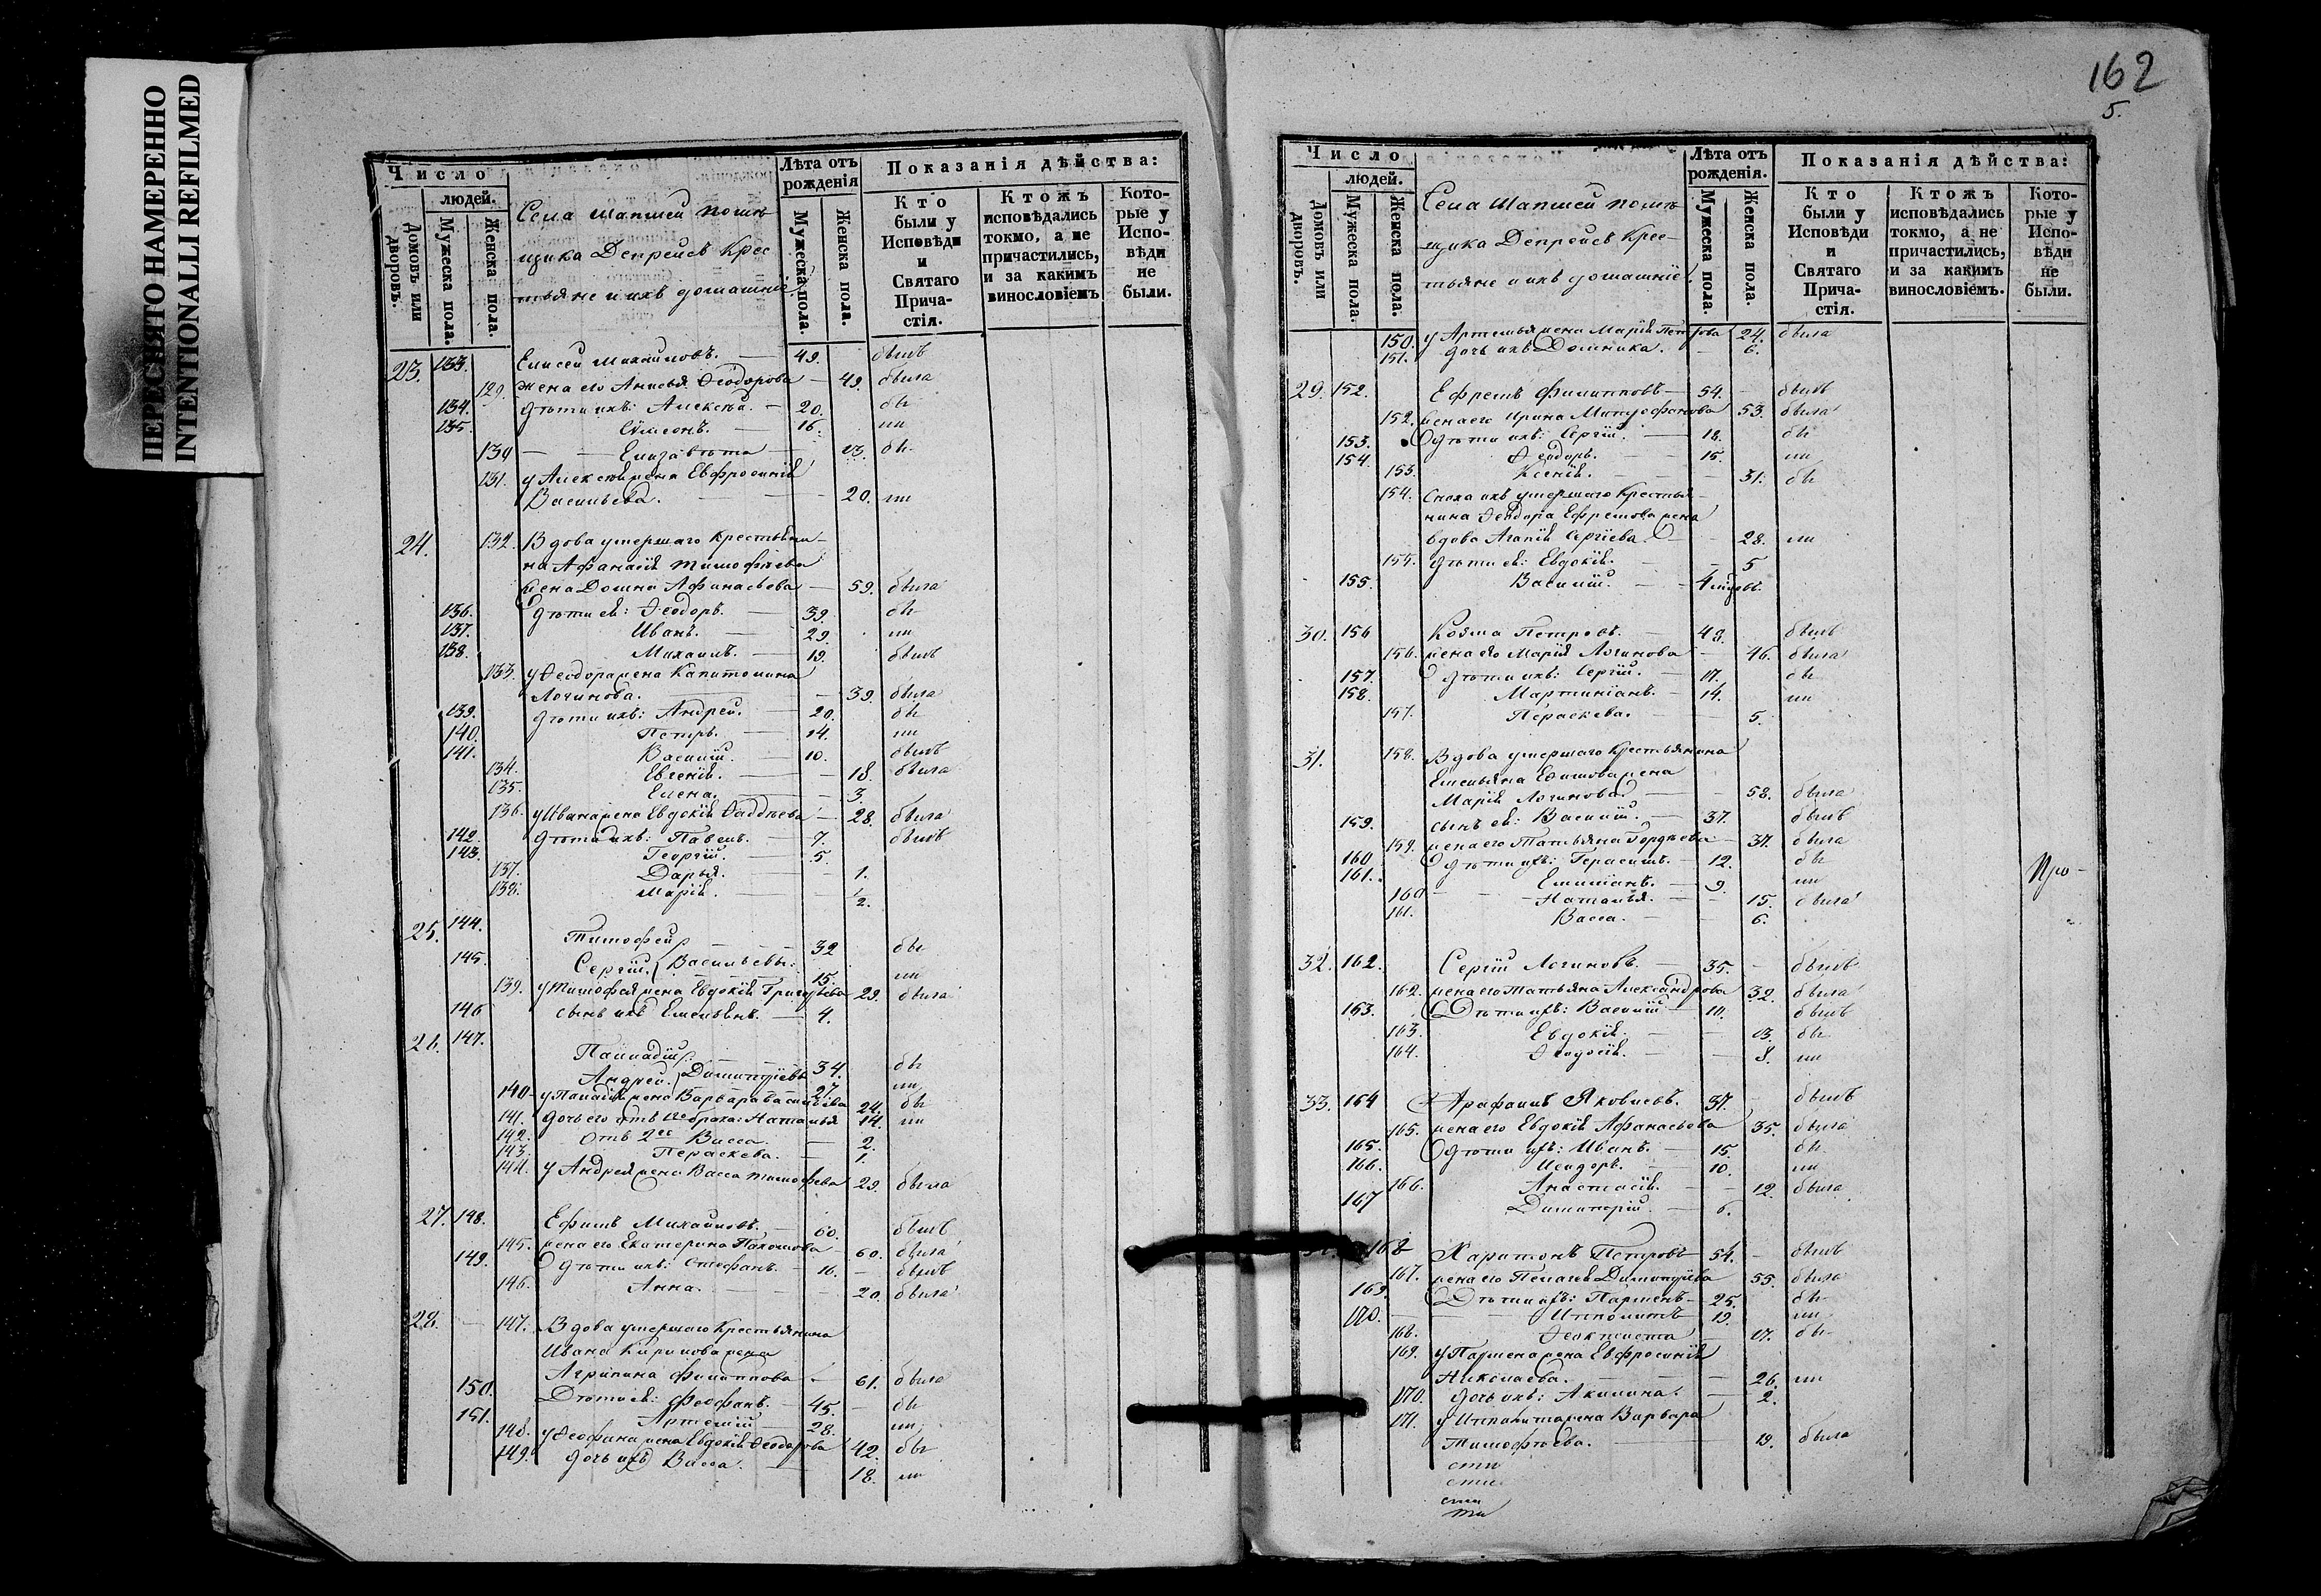 ПЕРЕСНЯТО НАМЕРЕННО
INTENTIONALLI REFILMED
Число
людей.
Домовъ или дворовъ.
Мужеска пола.
Женска пола.
Села Шапшей помѣ
щика Депрейсъ Крес
тьяне и ихъ домашніе.
Лѣта отъ рожденія
Мужеска пола.
Женска пола.
Показанія дѣйства:
Кто были у Исповѣди и Святаго Прича-стія.
Ктожъ исповѣдались токмо, а не причастились, и за какимъ винословіемъ
Кото-рые у Испо-вѣди не были.
23. 133. Елисей Михайловъ. — 49. былъ
129. жена его Анисья Ѳеодорова — 49. была
134. дѣти ихъ: Алексѣй. — 20. бы
135. Сѷмеонъ. — 16. ли
130 — — Елизавета — 13. бы
131. у Алексѣя жена Евфросинія
Васильева. — — 20. ли
24. 132. Вдова умершаго крестьяни-
на Афанасія Тимофѣева
жена Домна Афанасьева — 59. была
136. дѣти ея: Ѳеодоръ. — 39. бы
137. Иванъ. — 29. ли
138. Михаилъ. — 19. былъ
133. у Ѳеодора жена Капитолина
Логинова. — 39. была
139. дѣти ихъ: Андрей. — 20. бы
140. Петръ. — 14. ли
141. Василій. — 10. былъ
134. Евгенія. — — 18. была
135. Елена. — — 3.
136. у Ивана жена Евдокія Ѳаддѣева — 28. была
142. дѣти ихъ: Павелъ. — 7. былъ
143. Георгій. — 5.
137. Дарья. — — 1.
138. Марія. — — 1/2.
25. 144. Тимофей — 32 бы
145. Сергій. Васильевы: 15. ли
139. у Тимофея жена Евдокія Григорьева 29. была
146 сынъ ихъ Емельянъ. — 4.
26. 147. Палладій 34. бы
Андрей. Димитріевы 27. ли
140 у Паладія жена Варвара Васильева 24. бы
141. дочь его отъ 1го брака: Наталья 14. ли
142. Отъ 2го Васса. — 2.
143. Параскева. — 1.
144. у Андрея жена Васса Тимофеева 29. была
27. 148. Ефимъ Михайловъ. — 60. былъ
145. жена его Екатерина Пахомова 60. была
149. дѣти ихъ: Стефанъ. — 16. — былъ
146. Анна. — — 20. была
28. — 147. Вдова умершаго Крестьянина
Ивана Кирилова жена
Агрипина Филиппова — 61. была
150. Дѣти ея: Феофанъ. — 45. — бы
151. Артемій — 28. ли
148. у Феофана жена Евдокія Ѳеодорова 42. бы
149. дочь ихъ Васса. — 18. ли
162
5.
Число
людей.
Домовъ или дворовъ.
Мужеска пола.
Женска пола.
Села Шапшей помѣ
щика Депрейсъ Крес-
тьяне и ихъ домашніе.
Лѣта отъ рожденія.
Мужеска пола.
Женска пола.
Показанія дѣйства:
Кто были у Исповѣди и Святаго Прича-стія.
Ктожъ исповѣдались токмо, а не причастились, и за какимъ винословіемъ.
Кото-рые у Испо-вѣди не были.
150. у Артемья жена Марія Петрова 24. была
151. дочь ихъ Домника. — 6.
29. 152. Ефремъ Филипповъ — 54. — былъ
152. жена его Ирина Митрофанова 53. была
153. дѣти ихъ: Сергій. — 18. бы
154. Ѳеодоръ. — 15. ли
153. Ксенія. — — 31. бы
154. Сноха ихъ умершаго Крестья-
нина Ѳеодора Ефремова жена
вдова Агапія Сергіева. — 28. ли
155. дѣти ея: Евдокія. — — 5
155. Василій. — — 4 мѣсяц.
30. 156 Козма Петровъ. — 49. былъ
156. жена его Марія Логинова — 46. была
157. дѣти ихъ: Сергій. — 17. бы
158. Мартиніанъ. — 14. ли
157. Параскева. — — 5.
31. 158. Вдова умершаго Крестьянина
Емельяна Ефимова жена
Марія Логинова. — 58. была
159. сынъ ея: Василій. — 37. былъ
159. жена его Татьяна Гордѣева — 37. была
160 дѣти ихъ: Герасимъ. — 12. бы
161. Емиліанъ. — 9. ли
160 — — Наталья. — — 15. была
161. Васса. — — 6.
Про-
32. 162. Сергій Логиновъ. — 35. — былъ
162. жена его Татьяна Александрова 32. была
163. Дѣти ихъ: Василій — 10. былъ
163. Евдокія. — — 13. бы
164. Ѳеодосія. — — 8. ли
33. 164 Арафаилъ Яковлевъ. 37. — былъ
165. жена его Евдокія Афанасьева 35. была
165. дѣти ихъ: Иванъ. — 15. бы
166. Исидоръ. — 10. ли
166. Анастасія. — — 12. была
167 Димитрій. — 6.
168 Харитонъ Петровъ 54. — былъ
167. жена его Пелагія Димитріева 55. была
169. Дѣти ихъ: Парменъ — 25. бы
170. — — Ипполитъ 19. ли
168. Ѳеоктиста — 17. бы
169. у Пармена жена Евфросинія
Николаева. — — 26. ли
170. дочь ихъ: Акилина. — 2.
171. у Ипполита жена Варвара
Тимофѣева. — 19. была
сти
сти
сти
ти